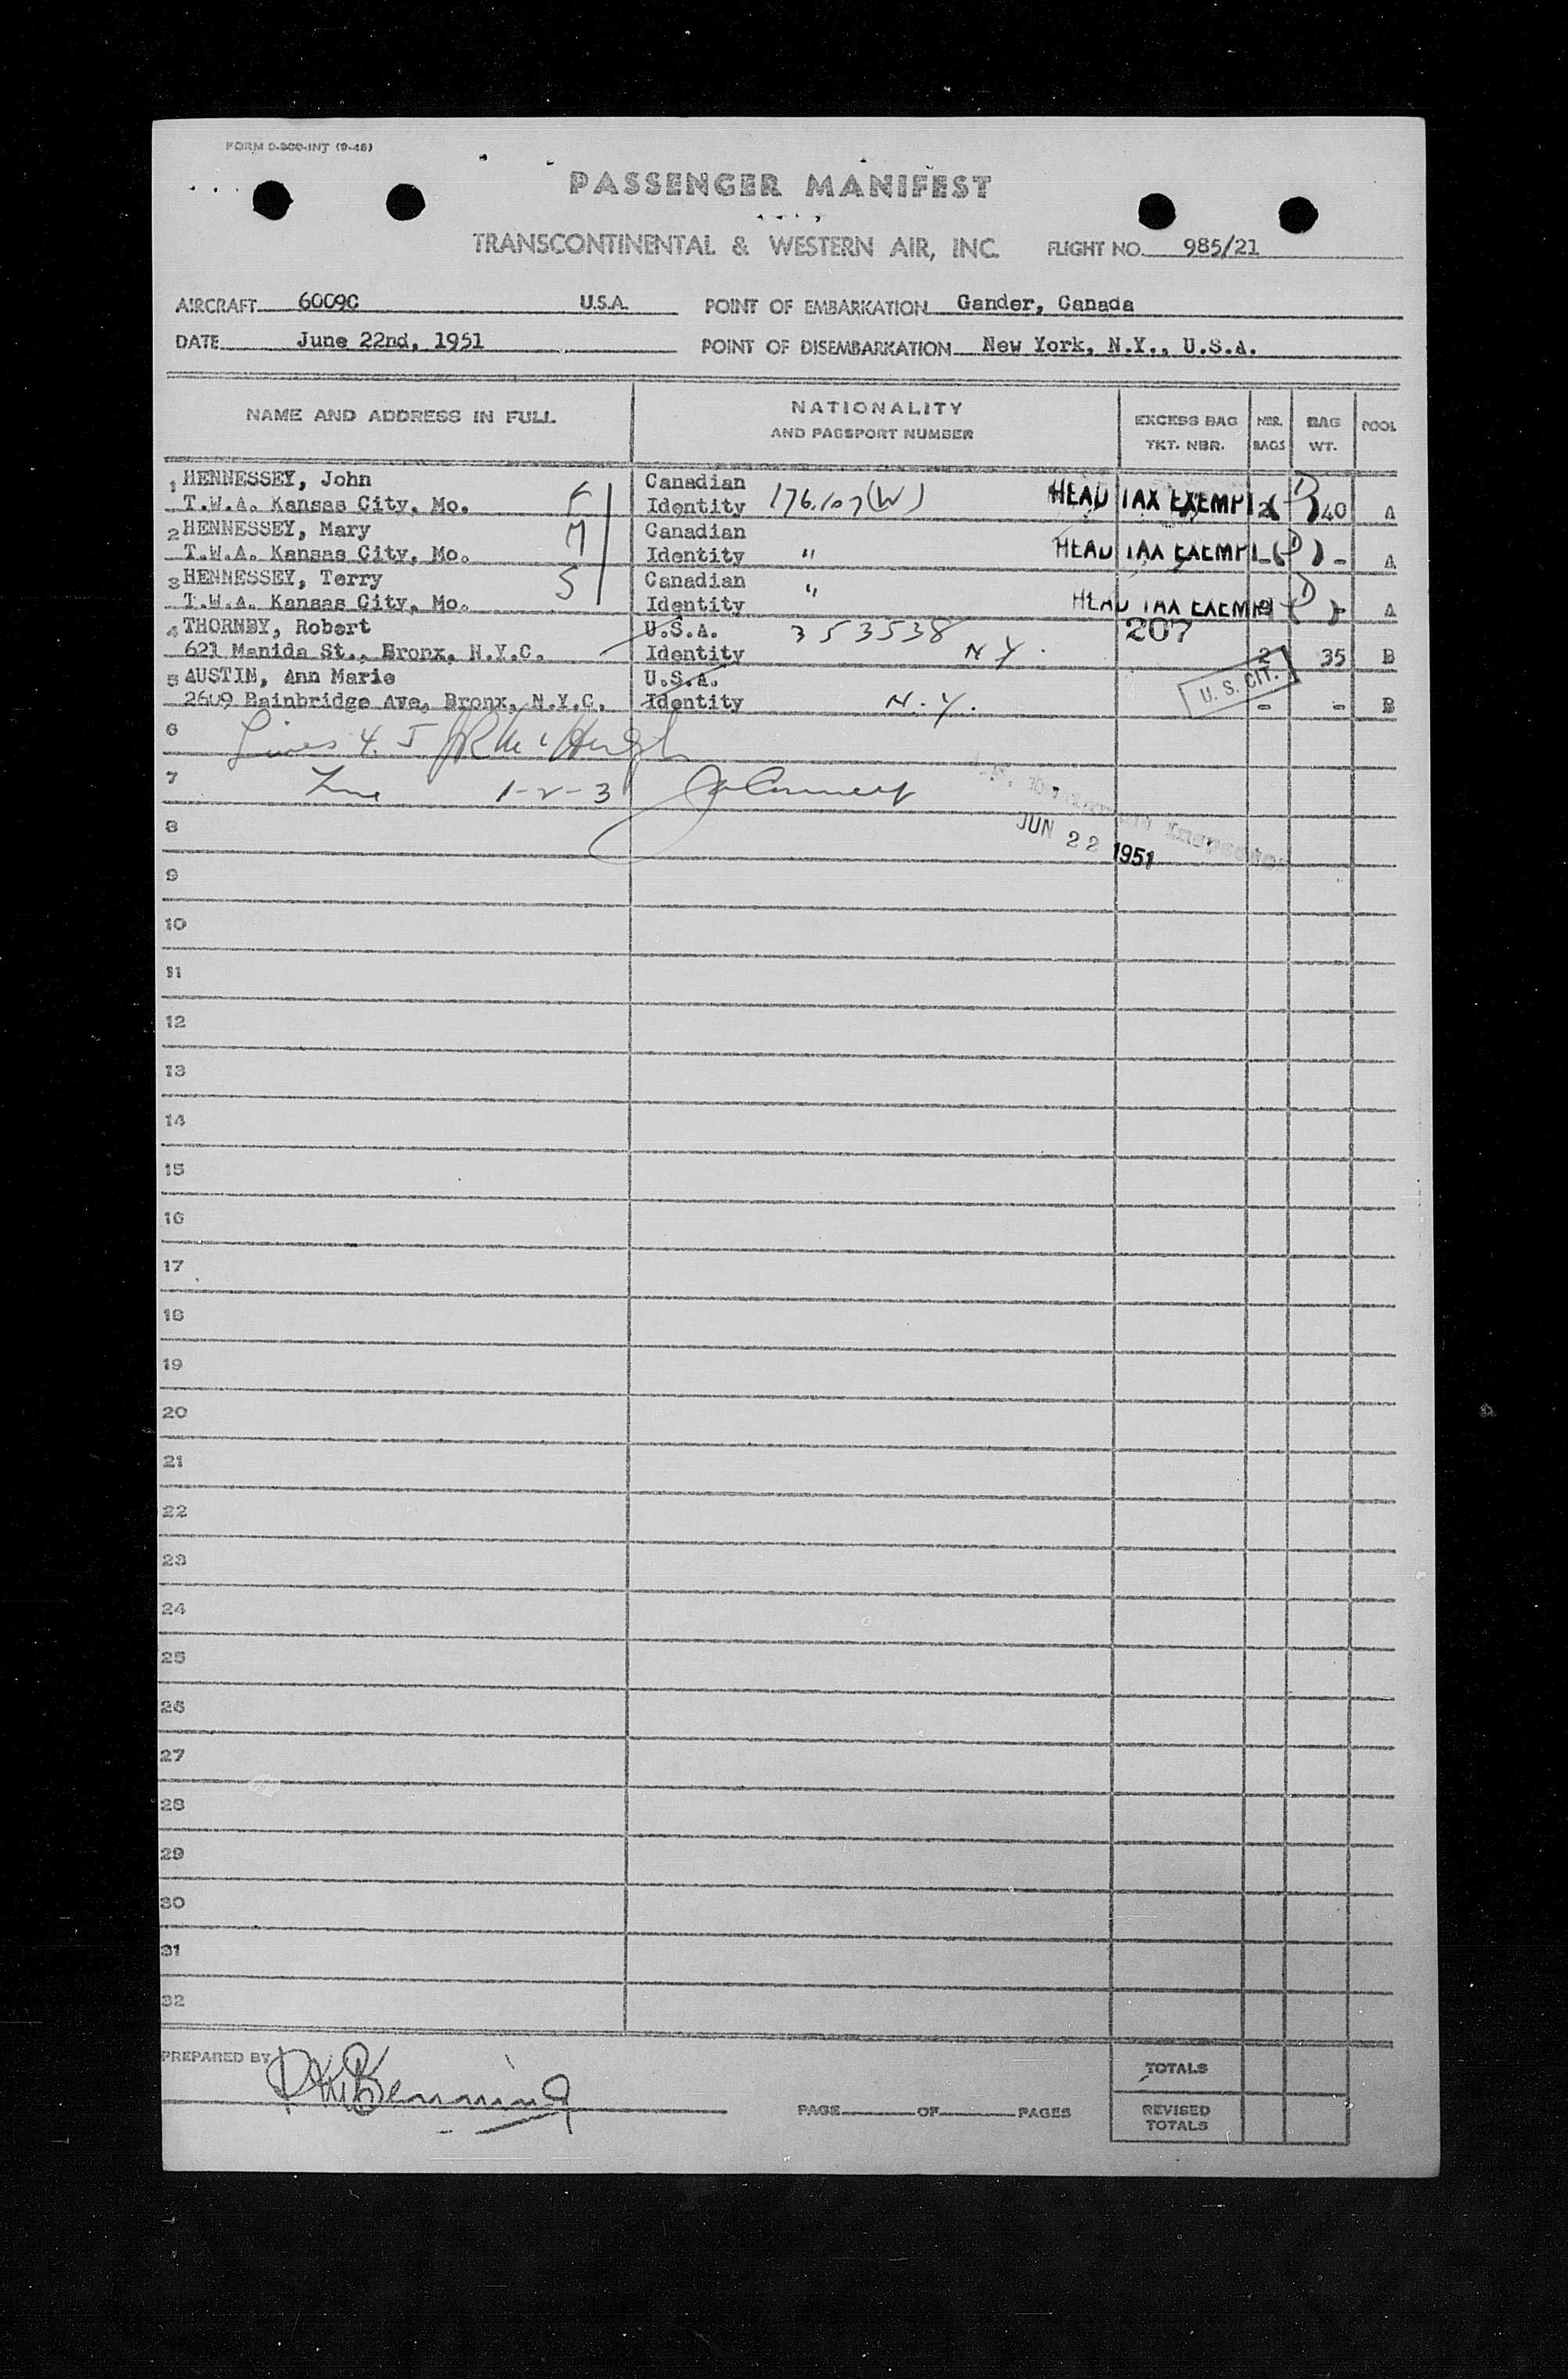 FORM 0-800-INT (9-46)
PASSENGER MANIFEST
TRANSCONTINENTAL & WESTERN AIR, INC. FLIGHT NO. 985/21
AIRCRAFT 6009C U.S.A. POINT OF EMBARKATION Gander, Canada
DATE June 22nd, 1951 POINT OF DISEMBARKATION New York, N.Y., U.S.A.
NAME AND ADDRESS IN FULL NATIONALITY AND PASSPORT NUMBER EXCESS BAG TKT. NBR. NBR. BAGS BAG WT. POOL
1 HENNESSEY, John Canadian
T.W.A. Kansas City, Mo. F Identity 176.107 (W) HEAD TAX EXEMPT 2 (D) 40 A
2 HENNESSEY, Mary Canadian
T.W.A. Kansas City, Mo. M Identity " HEAD TAX EXEMPT - (D) - A
3 HENNESSEY, Terry Canadian "
T.W.A. Kansas City, Mo. S Identity HEAD TAX EXEMPT (D) - A
4 THORNBY, Robert U.S.A. 353538 207
621 Manida St., Bronx, N.Y.C. Identity N.Y. 2 35 B
5 AUSTIN, Ann Marie U.S.A. U. S. CIT.
2609 Bainbridge Ave, Bronx, N.Y.C. Identity N.Y. - - B
6 Lines 4. 5
7 Line 1-2-3
8 JUN 22 1951
9
10
11
12
13
14
15
16
17
18
19
20
21
22
23
24
25
26
27
28
29
30
31
32
PREPARED BY TOTALS
PAGE OF PAGES REVISED TOTALS